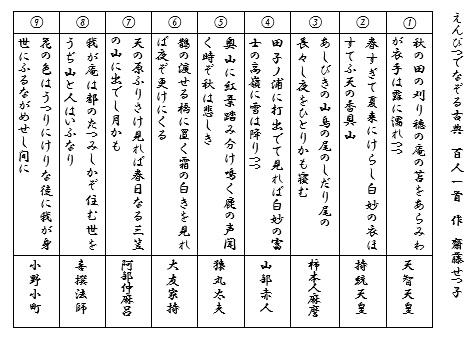 えんぴつでなぞる古典　百人一首　作　齋藤せつ子
①
秋の田の刈り穂の庵の苫をあらみわ
が衣手は露に濡れつつ
天智天皇
②
春すぎて夏来にけらし白妙の衣ほ
すてふ天の香具山
持統天皇
③
あしびきの山鳥の尾のしだり尾の
長々し夜をひとりかも寝む
柿本人麻麿
④
田子ノ浦に打出てて見れば白妙の富
士の高嶺に雪は降りつつ
山部赤人
⑤
奥山に紅葉踏み分け鳴く鹿の声聞
く時ぞ秋は悲しき
猿丸太夫
⑥
鵲の渡せる橋に置く霜の白きを見れ
ば夜ぞ更けにくる
大友家持
⑦
天の原ふりさけ見れば春日なる三笠
の山に出でし月かも
阿部仲麻呂
⑧
我が庵は都のたつみしかぞ住む世を
うぢ山と人はいふなり
喜撰法師
⑨
花の色はうつりにけりな徒に我が身
世にふるながめせし間に
小野小町